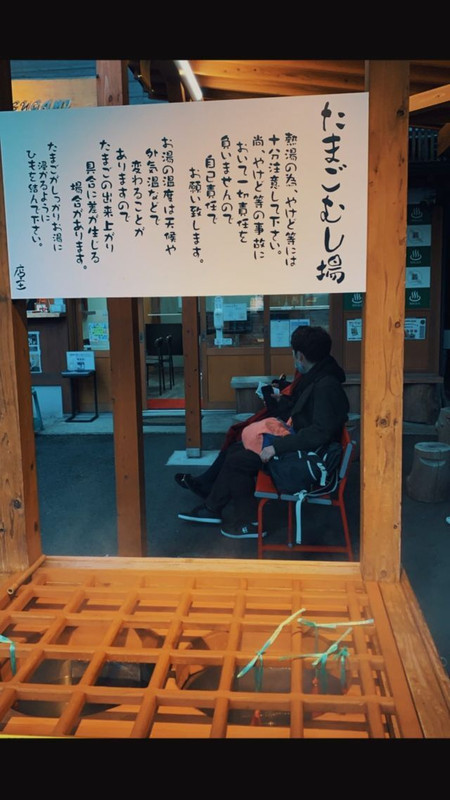 たまごむし場
熱湯の為、やけど等には
十分注意して下さい。
尚、やけど等の事故に
おいて一切責任を
負いませんので
自己責任で
お願い致します。
お湯の温度は天候や
外気温などで
変わることが
ありますので
たまごの出来上がり
具合に差が生じる
場合があります。
たまごがしっかりお湯に
浸かるように
ひもを結んで下さい。
店主